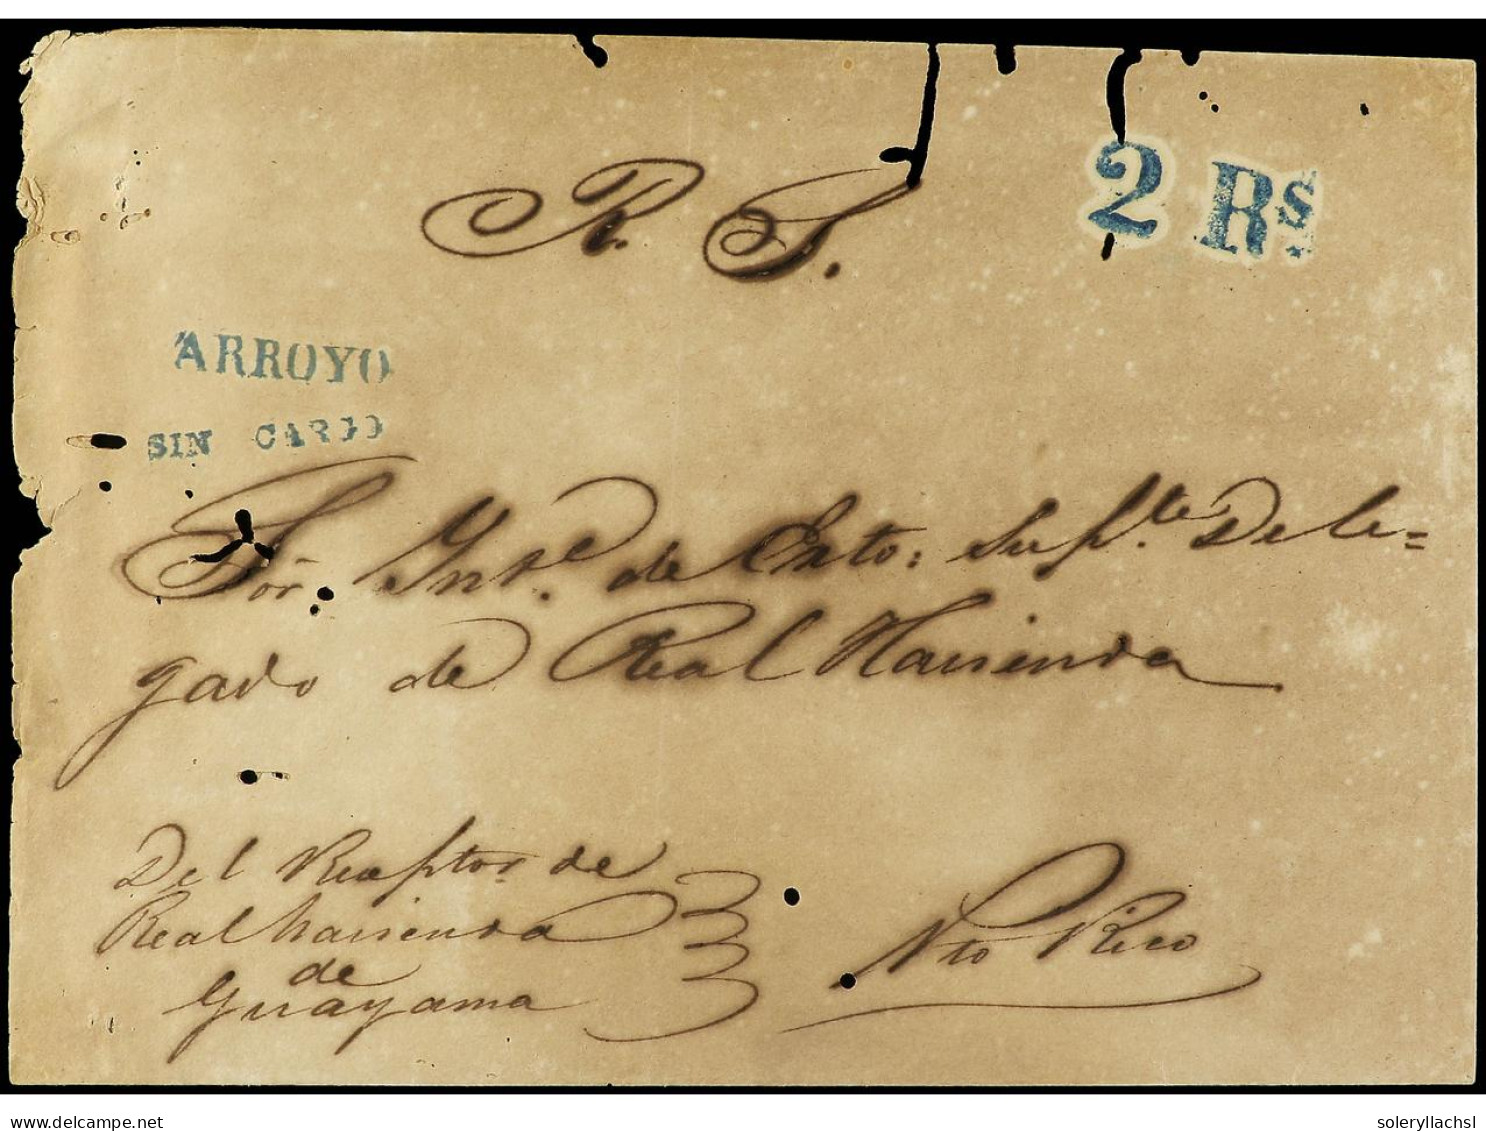 R. S.
2 Rs
ARROYO
SIN CARGO
Sor. Ynte. de Exto: Supte. Dele=
gado de Real Hacienda
Del Receptor de
Real hacienda
de
Guayama
Pto Rico
delcampe.net
soleryllachsl